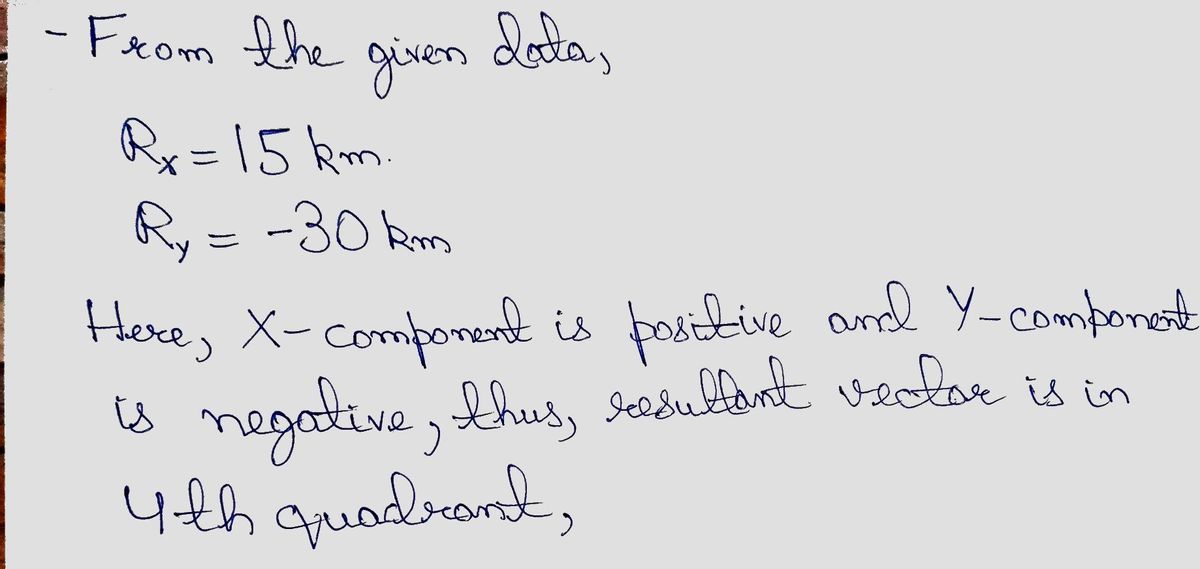 - From the given data,
Rx = 15 km.
Ry = -30 km
Here, X-component is positive and Y-component
is negative, thus, resultant vector is in
4th quadrant,